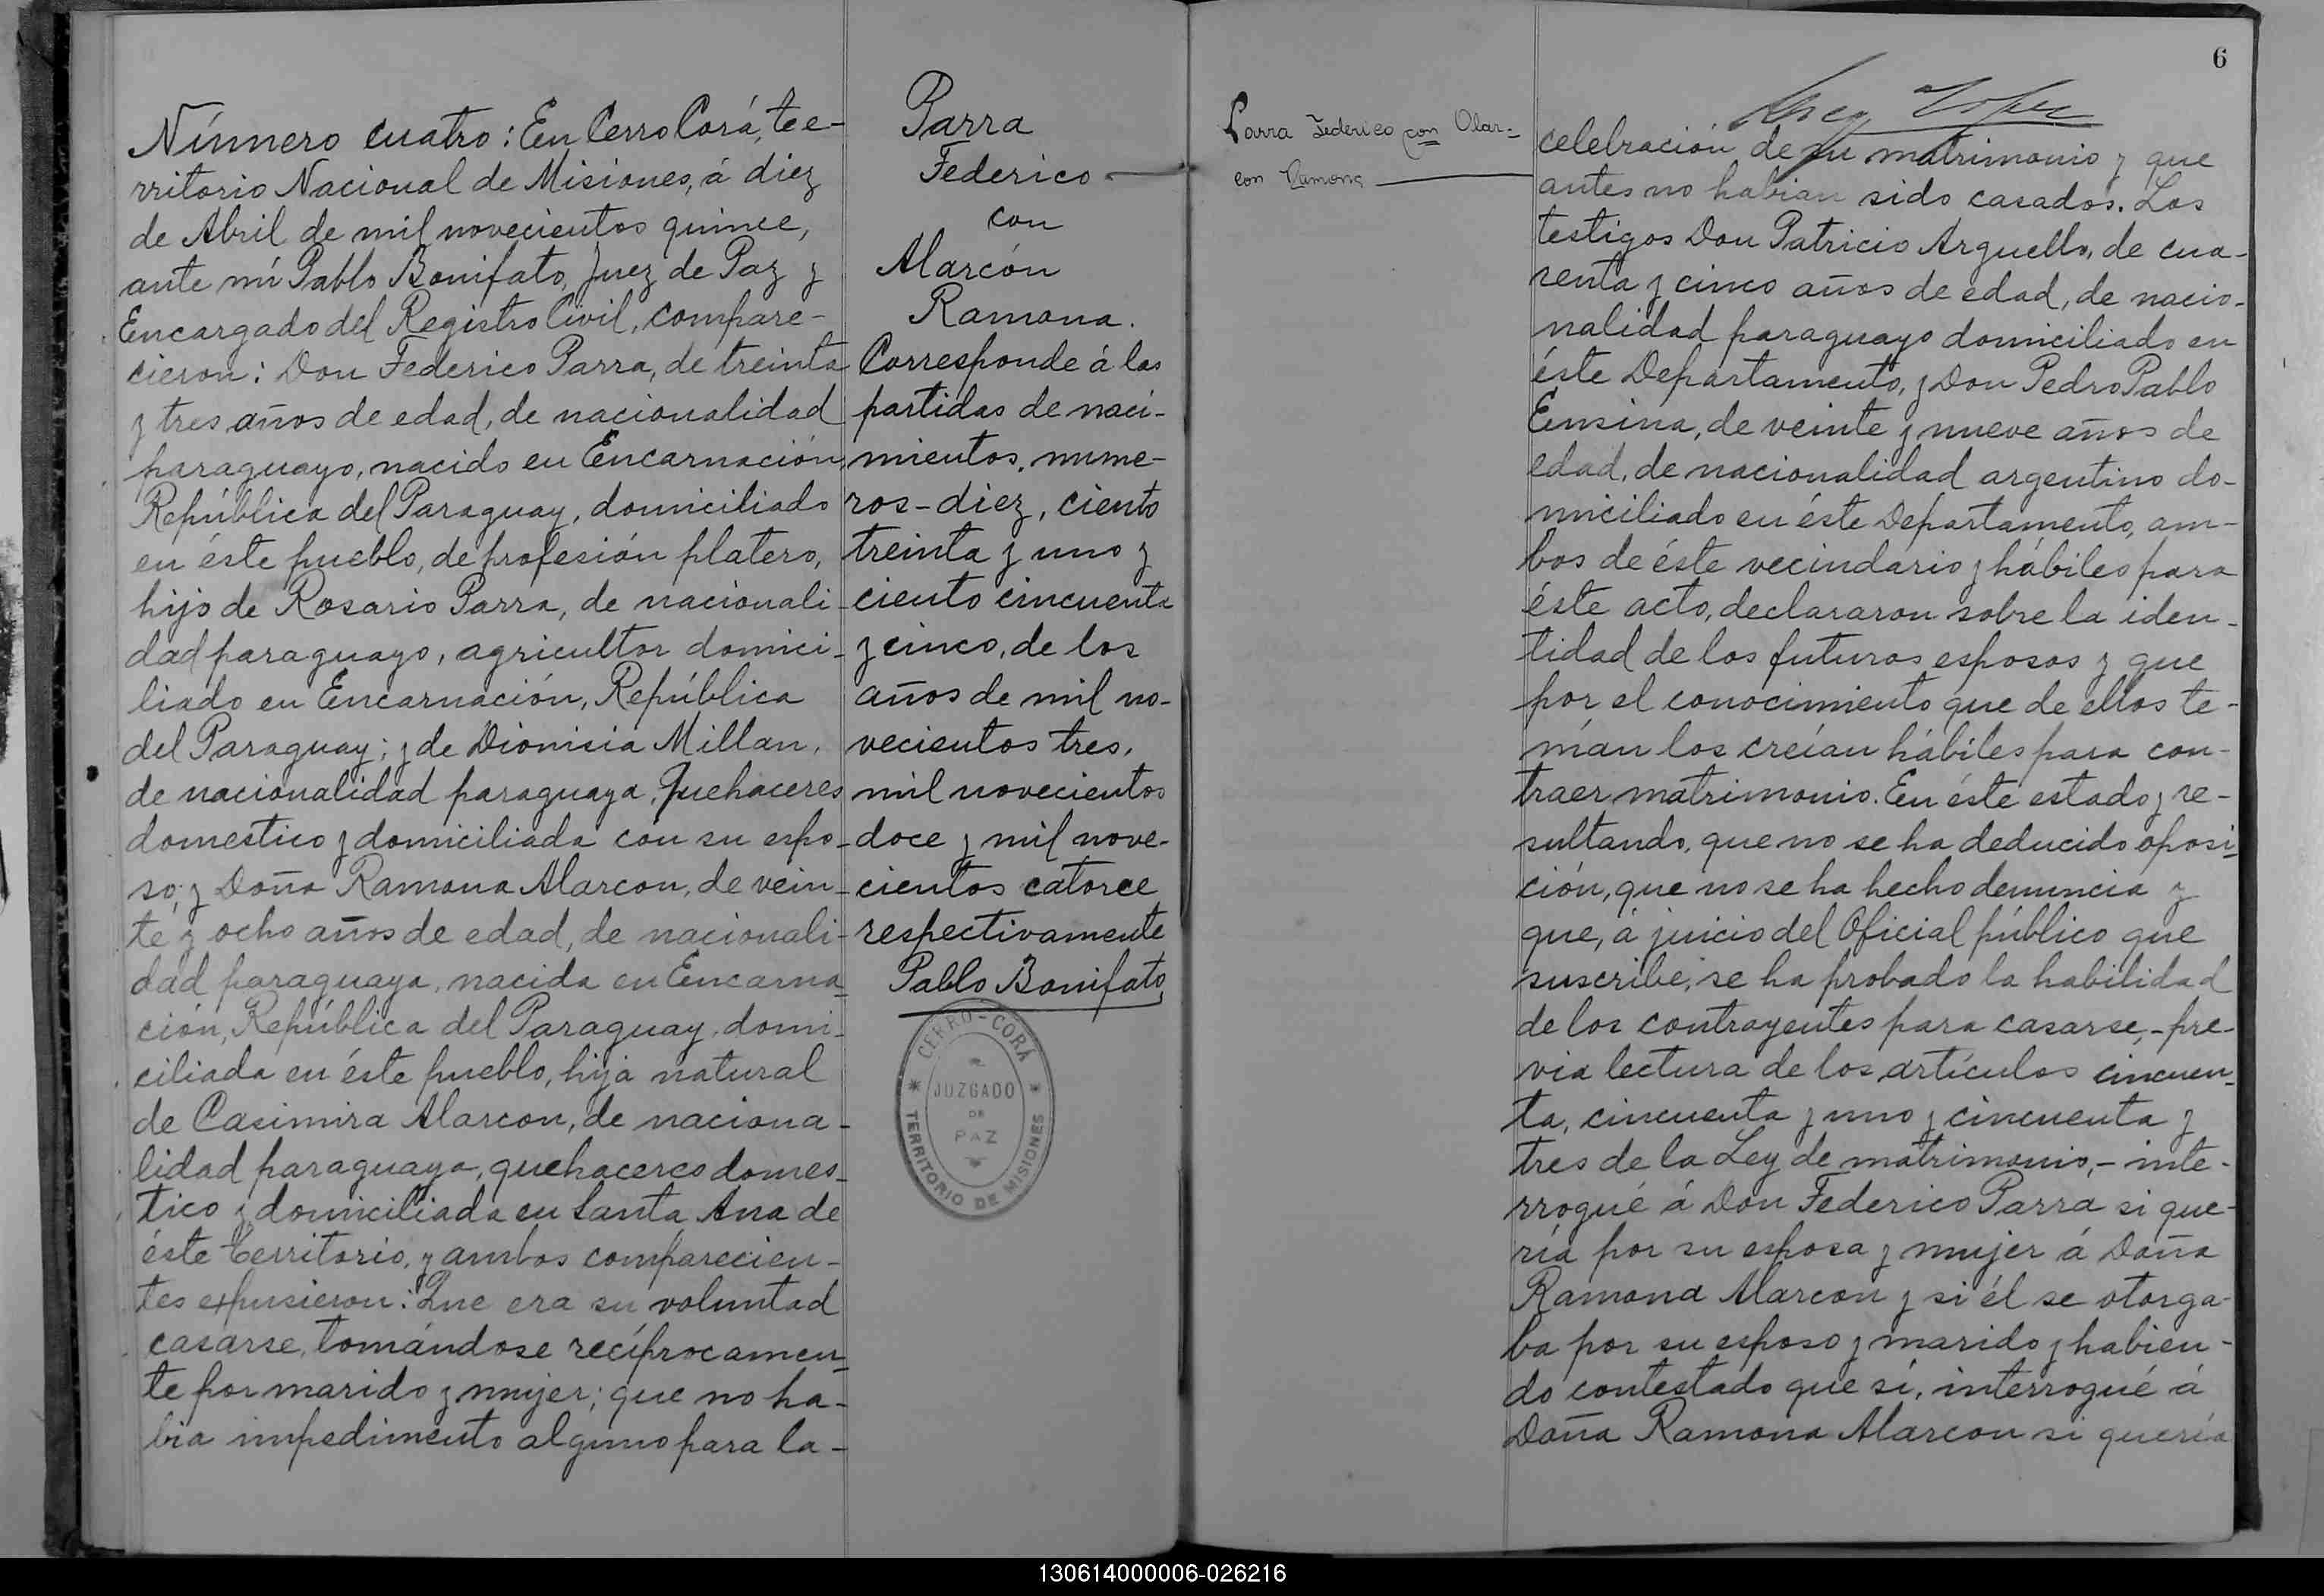 Número cuatro: En Cerro Corá, te-
rritorio Nacional de Misiones, á diez
de Abril de mil novecientos quince,
ante mí Pablo Bonifato, Juez de Paz y
Encargado del Registro Civil, compare-
cieron: Don Federico Parra, de treinta
y tres años de edad, de nacionalidad
paraguayo, nacido en Encarnación,
República del Paraguay, domiciliado
en éste pueblo, de profesión platero,
hijo de Rosario Parra, de nacionali-
dad paraguayo, agricultor domici-
liado en Encarnación, República
del Paraguay; y de Dionisia Millan,
de nacionalidad paraguaya, Quehaceres
domestico y domiciliada con su espo-
so; y Doña Ramona Alarcon, de vein-
te y ocho años de edad, de nacionali-
dad paraguaya, nacida en Encarna-
ción, República del Paraguay, domi-
ciliada en éste pueblo, hija natural
de Casimira Alarcon, de naciona-
lidad paraguaya, quehaceres domes-
tico y domiciliada en Santa Ana de
éste territorio, y ambos comparecien-
tes expusieron: Que era su voluntad
casarse, tomándose recíprocamen-
te por marido y mujer; que no ha-
bia impedimento alguno para la-
Parra
Federico
con
Alarcón
Ramona.
Corresponde á las
partidas de naci-
mientos, nume-
ros-diez, ciento
treinta y uno y
ciento cincuenta
y cinco, de los
años de mil no-
vecientos tres,
mil novecientos
doce y mil nove-
cientos catorce
respectivamente
Pablo Bonifato
CERRO-CORÁ
JUZGADO
DE
PAZ
TERRITORIO DE MISIONES
Parra Federico con Alar-
con Ramona
6
celebración de su matrimonio y que
antes no habian sido casados. Los
testigos Don Patricio Arguello, de cua-
renta y cinco años de edad, de nacio-
nalidad paraguayo domiciliado en
éste Departamento, y Don Pedro Pablo
Ensina, de veinte y nueve años de
edad, de nacionalidad argentino do-
miciliado en éste Departamento, am-
bos de éste vecindario y hábiles para
éste acto, declararon sobre la iden-
tidad de los futuros esposos y que
por el conocimiento que de ellos te-
nían los creían hábiles para con-
traer matrimonio. En éste estado y re-
sultando, que no se ha deducido oposi-
ción, que no se ha hecho denuncia y
que, á juicio del Oficial público que
suscribe, se ha probado la habilidad
de los contrayentes para casarse,-pre-
via lectura de los artículos cincuen-
ta, cincuenta y uno y cincuenta y
tres de la Ley de matrimonio,- inte-
rrogué á Don Federico Parra si que-
ría por su esposa y mujer á Doña
Ramona Alarcon y si él se otorga-
ba por su esposo y marido y habien-
do contestado que sí, interrogué á
Doña Ramona Alarcon si quería
130614000006-026216